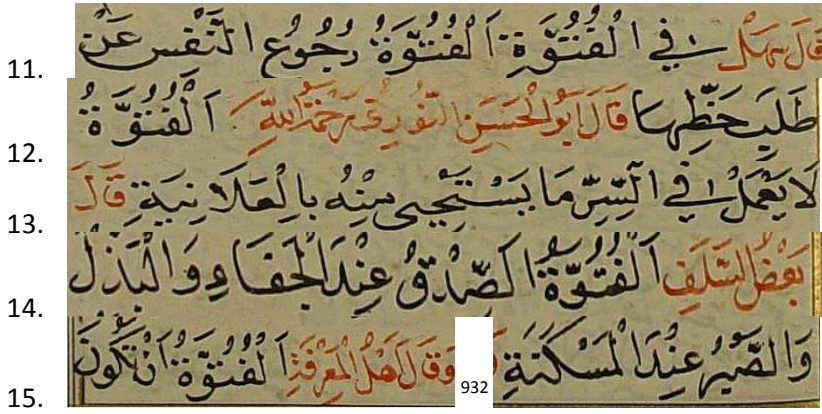 11. قَالَ سَهْلٌ فِي الْفُتُوَّةِ اَلْفُتُوَّةُ رُجُوعُ النَّفْسِ عَنْ
12. طَلَبِ حَظِّهَا قَالَ اَبُو الْحَسَنِ النُّورِىُّ رَحْمَةُ اللّٰهِ اَلْفُتُوَّةُ
13. لَا يَعْمَلُ فِي السِّرِّ مَا يَسْتَحْيِى مِنْهُ بِالْعَلَانِيَةِ قَالَ
14. بَعْضُ السَّلَفِ اَلْفُتُوَّةُ الصِّدْقُ عِنْدَ الْجَفَاءِ وَالْبَذْلُ
15. وَالصَّبْرُ عِنْدَ الْمَسْكَنَةِ 932 وَقَالَ اَهْلُ الْمَعْرِفَةِ اَلْفُتُوَّةُ اَنْ تَكُونَ